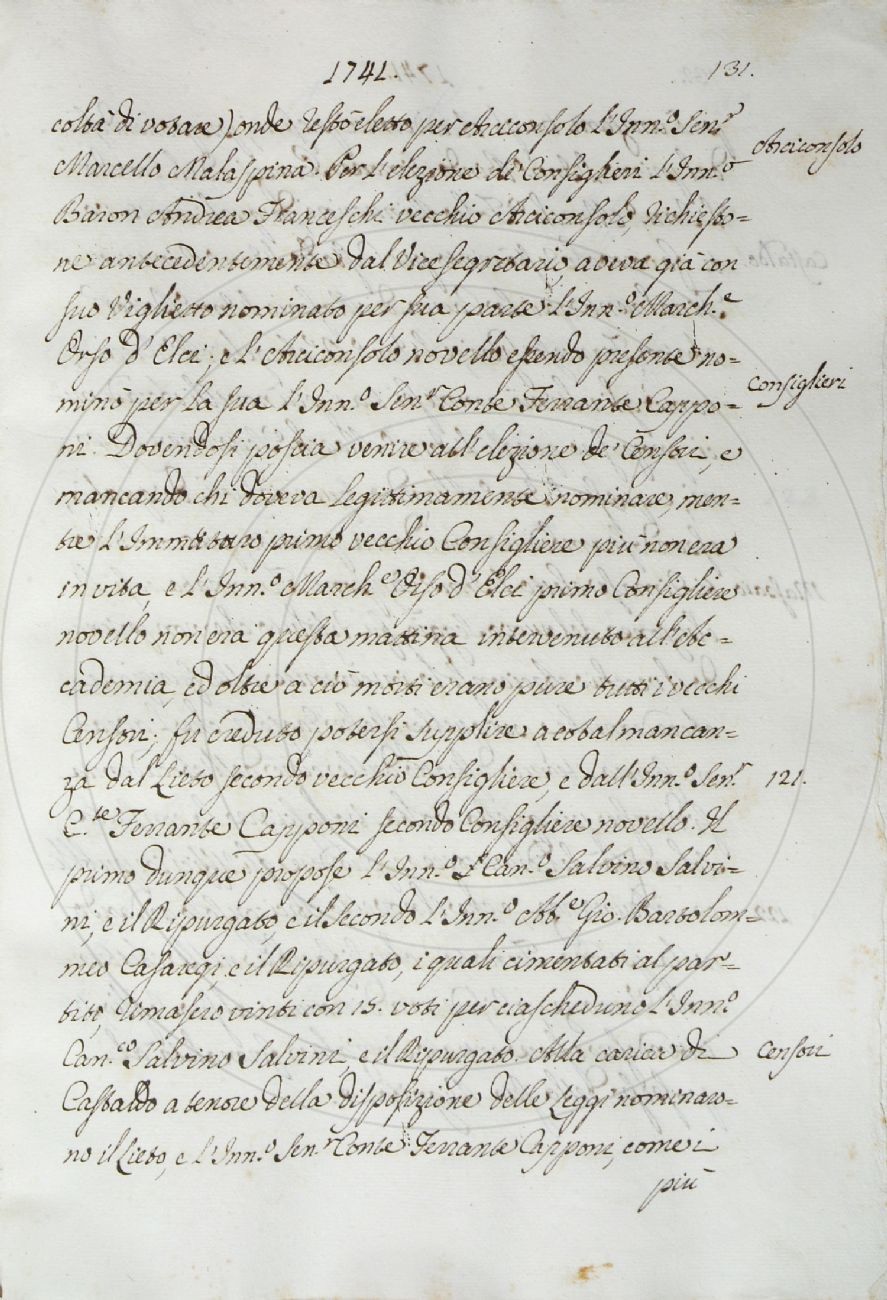 1741.
131.
coltà di votare) onde restò eletto per Arciconsolo l'Inn.º Sen.ʳ
Arciconsolo
Marcello Malaspina. Per l'elezione de' Consiglieri l'Inn.º
Baron Andrea Franceschi vecchio Arciconsolo, richiesto=
ne antecedentemente dal Vicesegretario aveva già con
suo Viglietto nominato per sua parte l'Inn.º March.ᵉ
Orso d'Elci; e l'Arciconsolo novello essendo presente no=
minò per la sua l'Inn.º Sen.ʳ Conte Ferrante Cappo=
Consiglieri
ni. Dovendosi poscia venire all'elezione de' Censori, e
mancando chi doveva legittimamente nominare, men=
tre l'Immaturo primo vecchio Consigliere più non era
in vita, e l'Inn.º March.ᵉ Orso d'Elci primo Consigliere
novello non era questa mattina intervenuto all'Ac=
cademia, ed oltre a ciò morti erano pure tutti i vecchi
Censori; fu creduto potersi supplire a cotal mancan=
za dal Lieto secondo vecchio Consigliere, e dall'Inn.º Sen.ʳ
121.
C.ᵗᵉ Ferrante Capponi secondo Consigliere novello. Il
primo dunque propose l'Inn.º S.ʳ Can.º Salvino Salvi=
ni, e il Ripurgato, e il secondo l'Inn.º Ab.ᵉ Gio. Bartolom=
meo Casaregi, e il Ripurgato, i quali cimentati al par=
tito, rimasero vinti con 15. voti per ciascheduno l'Inn.º
Can.ᶜᵒ Salvino Salvini, e il Ripurgato. Alla carica di
Censori
Castaldo a tenore della disposizione delle Leggi nominaro=
no il Lieto, e l'Inn.º Sen.ʳ Conte Ferrante Capponi, come i
più